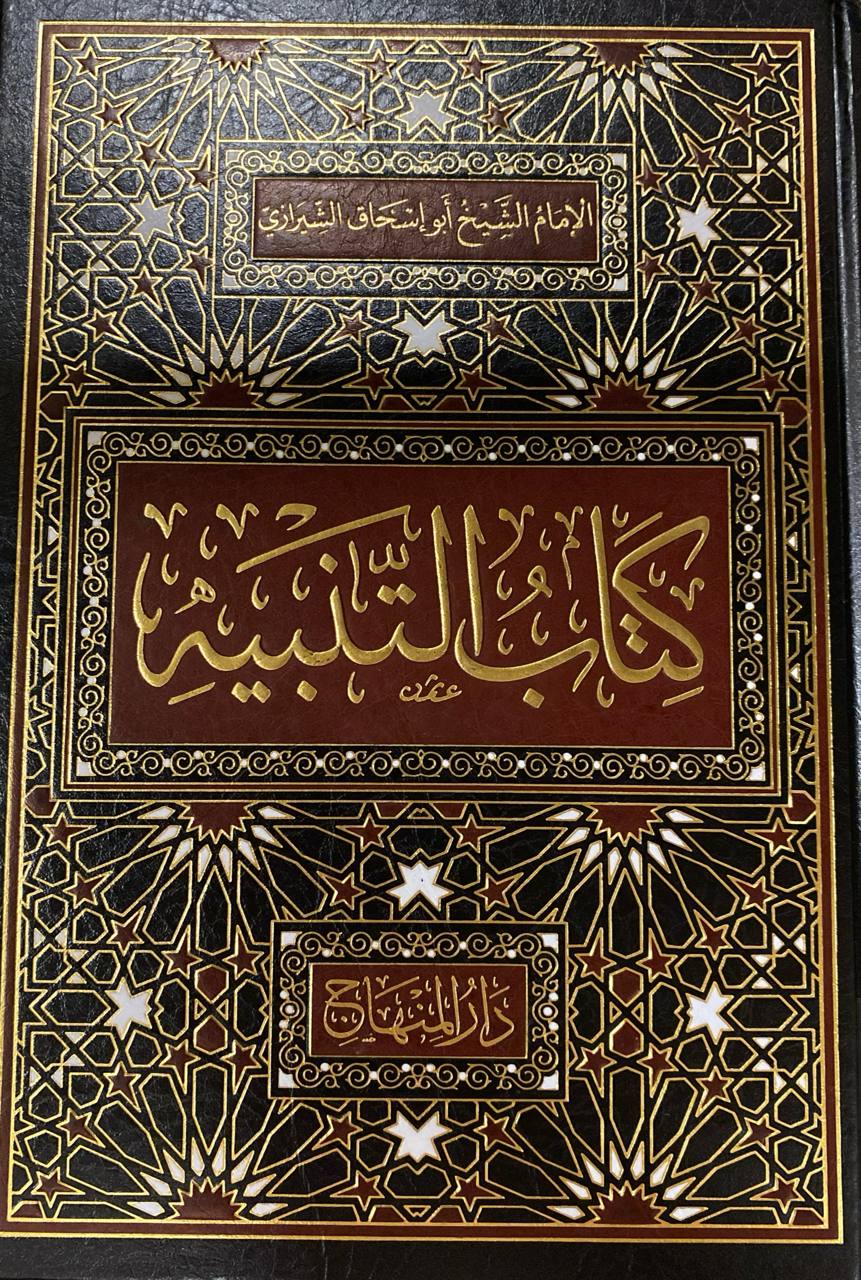 الإمَامُ الشَّيْخُ أَبُو إِسْحَاقَ الشِّيرَازِيّ
كِتَابُ التَّنبِيْهِ
دَارُ المِنْهَاجِ